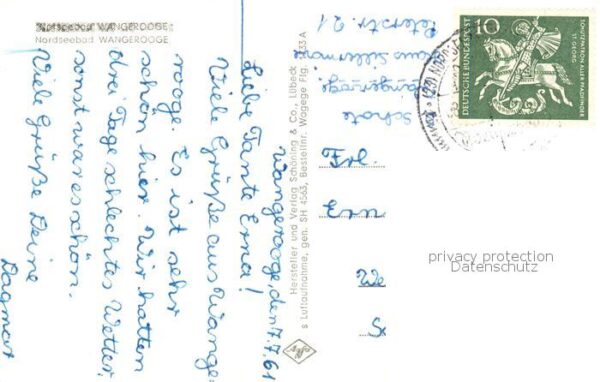 Nordseebad WANGEROOGE
Nordseebad WANGEROOGE
Wangerooge, den 7.7.61
Liebe Tante Erna!
Viele Grüße aus Wange-
rooge. Es ist sehr
schön hier. Wir hatten
drei Tage schlechtes Wetter,
sonst war es schön.
Viele Grüße Deine
Dagmar
Hersteller und Verlag Schöning & Co., Lübeck
s Luftaufnahme, gen. SH 4563, Bestellnr. Wagege Flg. 1333 A
Peterstr. 21
Wangeroog
Frl.
Ern
W
S
10
DEUTSCHE BUNDESPOST
SCHUTZPATRON ALLER PFADFINDER
ST. GEORG
privacy protection
Datenschutz